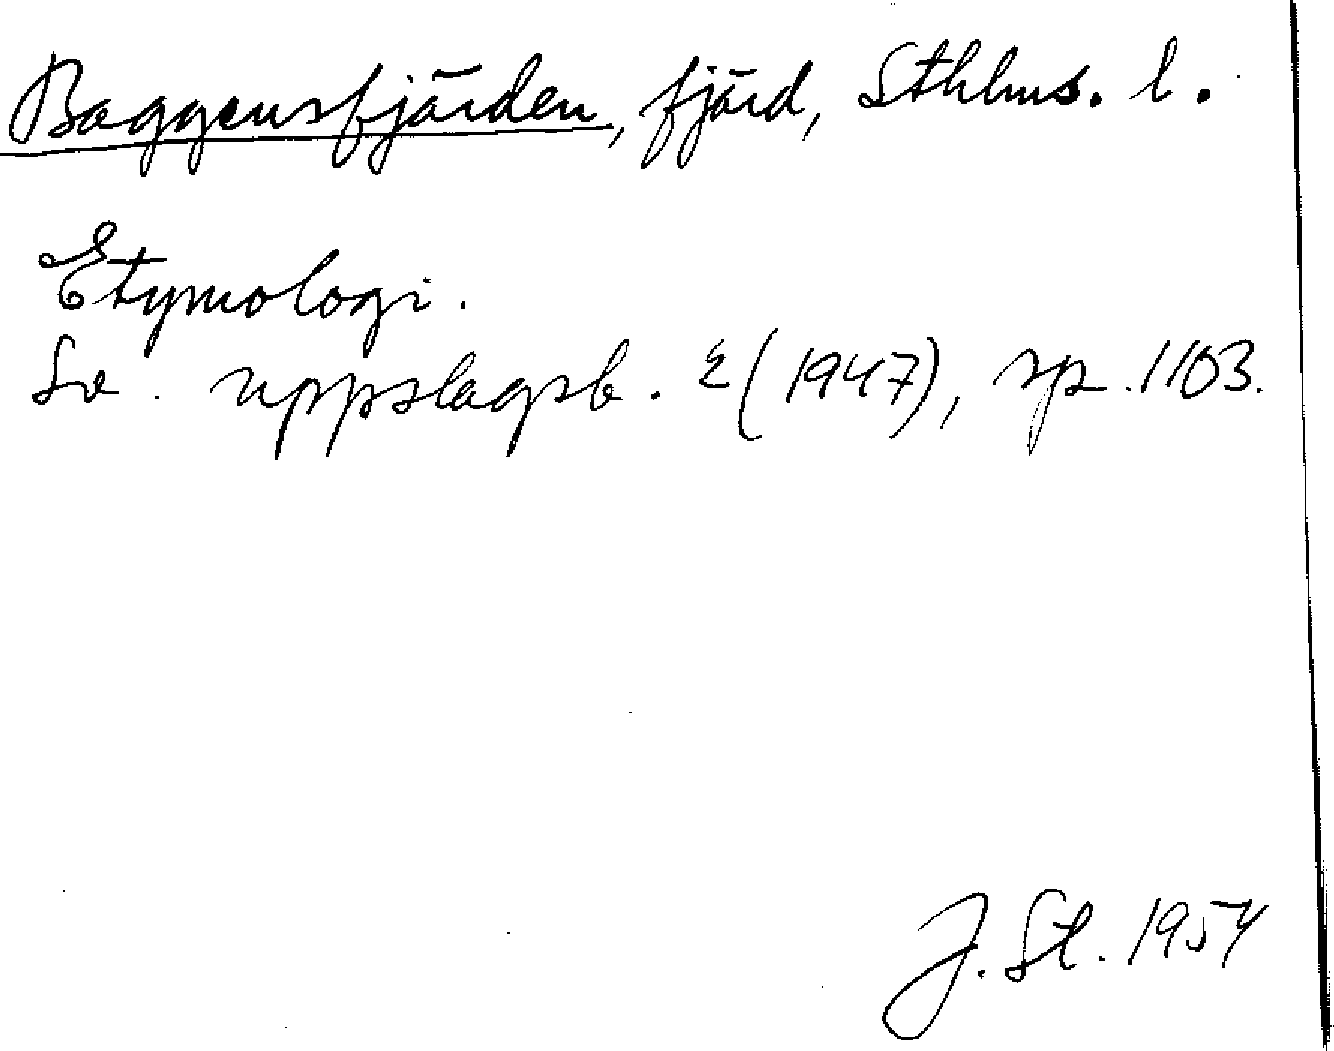 Baggensfjärden, fjärd, Sthlms. l.
Etymologi.
Sv. uppslagsb. 2 (1947), sp. 1103.
J. St. 1954